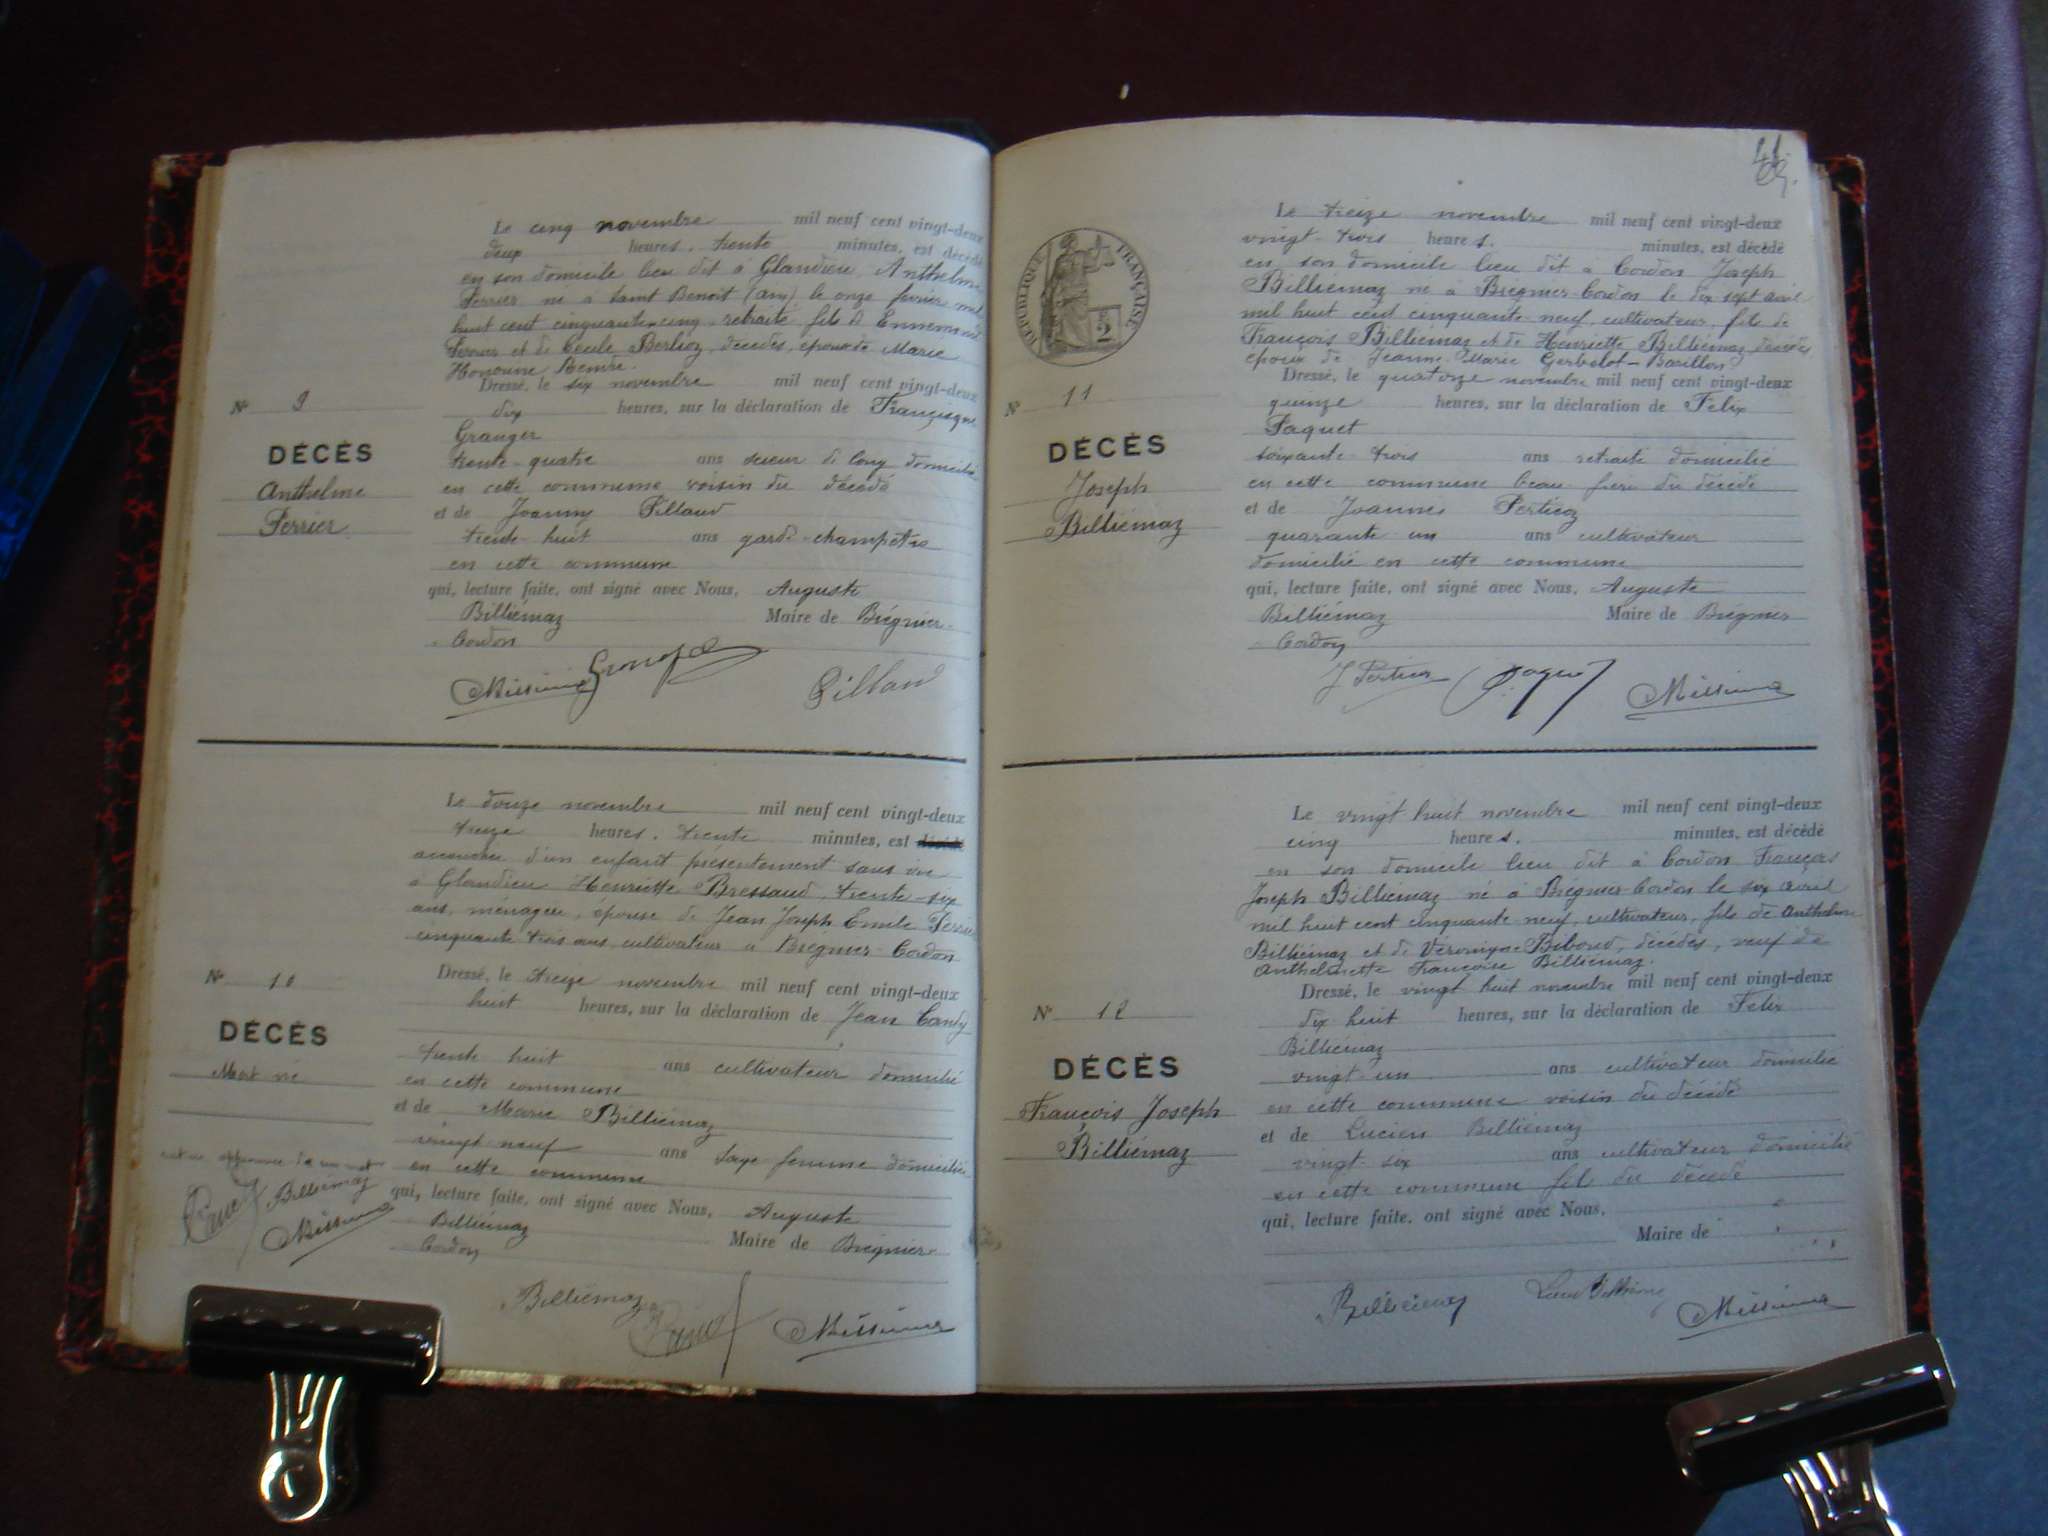 Le cinq novembre mil neuf cent vingt-deux
deux heures, trente minutes, est décédé
en son domicile lieu dit à Glandieu, Anthelme
Perrier né à Saint Benoit (Ain) le onze février mil
huit cent cinquante-cinq, retraité, fils de Ennemond
Perrier et de Cécile Berlioz, décédés, époux de Marie
Honorine
Dressé, le six novembre mil neuf cent vingt-deux
dix heures, sur la déclaration de Francisque
Granger
trente-quatre ans scieur de long domicilié
en cette commune voisin du décédé
et de Joanny Pillaud
trente-huit ans garde-champêtre
en cette commune
qui, lecture faite, ont signé avec Nous, Auguste
Billiémaz Maire de Brégnier-
Cordon
Nº 9
DÉCÈS
Anthelme
Perrier
Missima Pillaud
Le douze novembre mil neuf cent vingt-deux
treize heures, trente minutes, est décédé
accouchée d'un enfant présentement sans vie
à Glandieu Henriette Bressaud, trente-six
ans, ménagère, épouse de Jean Joseph Emile Perrier
cinquante trois ans, cultivateur à Brégnier-Cordon
Dressé, le treize novembre mil neuf cent vingt-deux
huit heures, sur la déclaration de Jean
trente huit ans cultivateur domicilié
en cette commune
et de Marie Billiémaz
vingt-neuf ans sage femme domiciliée
en cette commune
qui, lecture faite, ont signé avec Nous, Auguste
Billiémaz Maire de Brégnier-
Cordon
Nº 10
DÉCÈS
Mort né
Billiémaz
Missima
Billiémaz Missima
RÉPUBLIQUE FRANÇAISE
2
Le treize novembre mil neuf cent vingt-deux
vingt-trois heures, minutes, est décédé
en son domicile lieu dit à Cordon Joseph
Billiémaz né à Brégnier-Cordon le dix sept avril
mil huit cent cinquante-neuf, cultivateur, fils de
François Billiémaz et de Henriette Billiémaz décédés
époux de Jeanne-Marie Gerbelot-Barillon
Dressé, le quatorze novembre mil neuf cent vingt-deux
quinze heures, sur la déclaration de Felix
Paquet
soixante-trois ans retraité domicilié
en cette commune beau-frère du décédé
et de Joannès Pertioz
quarante-un ans cultivateur
domicilié en cette commune
qui, lecture faite, ont signé avec Nous, Auguste
Billiémaz Maire de Brégnier
Cordon
Nº 11
DÉCÈS
Joseph
Billiémaz
Missima
Le vingt-huit novembre mil neuf cent vingt-deux
cinq heures, minutes, est décédé
en son domicile lieu dit à Cordon François
Joseph Billiémaz né à Brégnier-Cordon le six avril
mil huit cent cinquante neuf, cultivateur, fils de Anthelme
Billiémaz et de Véronique Riboud, décédés, veuf de
Anthelmette Françoise Billiémaz.
Dressé, le vingt huit novembre mil neuf cent vingt-deux
dix huit heures, sur la déclaration de Felix
Billiémaz
vingt-un ans cultivateur domicilié
en cette commune voisin du décédé
et de Lucien Billiémaz
vingt-six ans cultivateur domicilié
en cette commune fils du décédé
qui, lecture faite, ont signé avec Nous, "
Maire de "
" "
Nº 12
DÉCÈS
François Joseph
Billiémaz
Billiémaz Missima